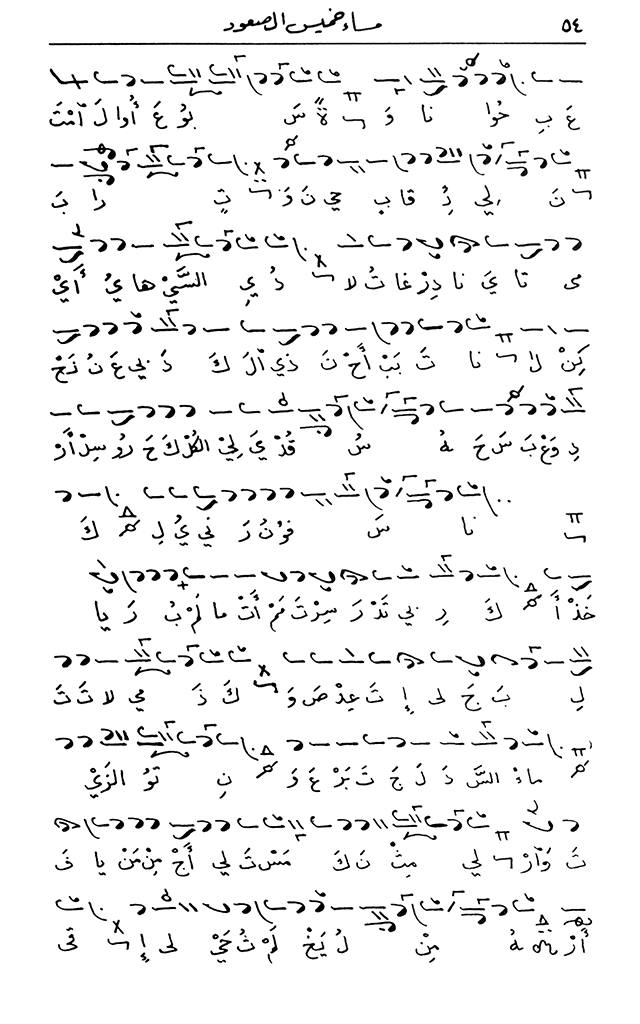 ٥٤ مساء خميس الصعود
عَ بِ خُوا نا وَ ةً سَ بُو عَ أُوا لَ آمْتَ
نَ لي ذِ قابِ حي نَ وَ تٍ را بَ
مى تا يَ نا دِرْغا تُ لا ذُ يِ السَّيْ هايُ أَيْ
كِنْ لا نا تَ بَبْ أَحْ نَ ذي آلَ كَ دَ بي عَ نُ نَحْ
دِ وَعْ بَ سَ حَ هُ سُ قُدْ يَ لِيْ الكُلْ كَ حَ رُو سِدْ أَرْ
نا سَ فوْ نُ رَ ني يُ لِ كَ
خَذْ أَ كَ رِ بي تَدْ رَ سِرْتَ مَمْ أَتْ ما لَمْ بُ رَ يا
لِ بَ جَ لى إِ تَ عِدْ صَ وَ كَ ذَ مي لا تَ تَ
ماءْ السَّ دَ لَ جَ تَ بَرْ عَ وَ نِ تو الزَيْ
تَ وَآرْ لي مِثْ نَ كَ مَسْ تَ لي أَجْ مِنْ مَنْ يا فَ
أَرْ هُ مِنْ لُ يَخْ لَمْ ثُ حَيْ لى إِ قى